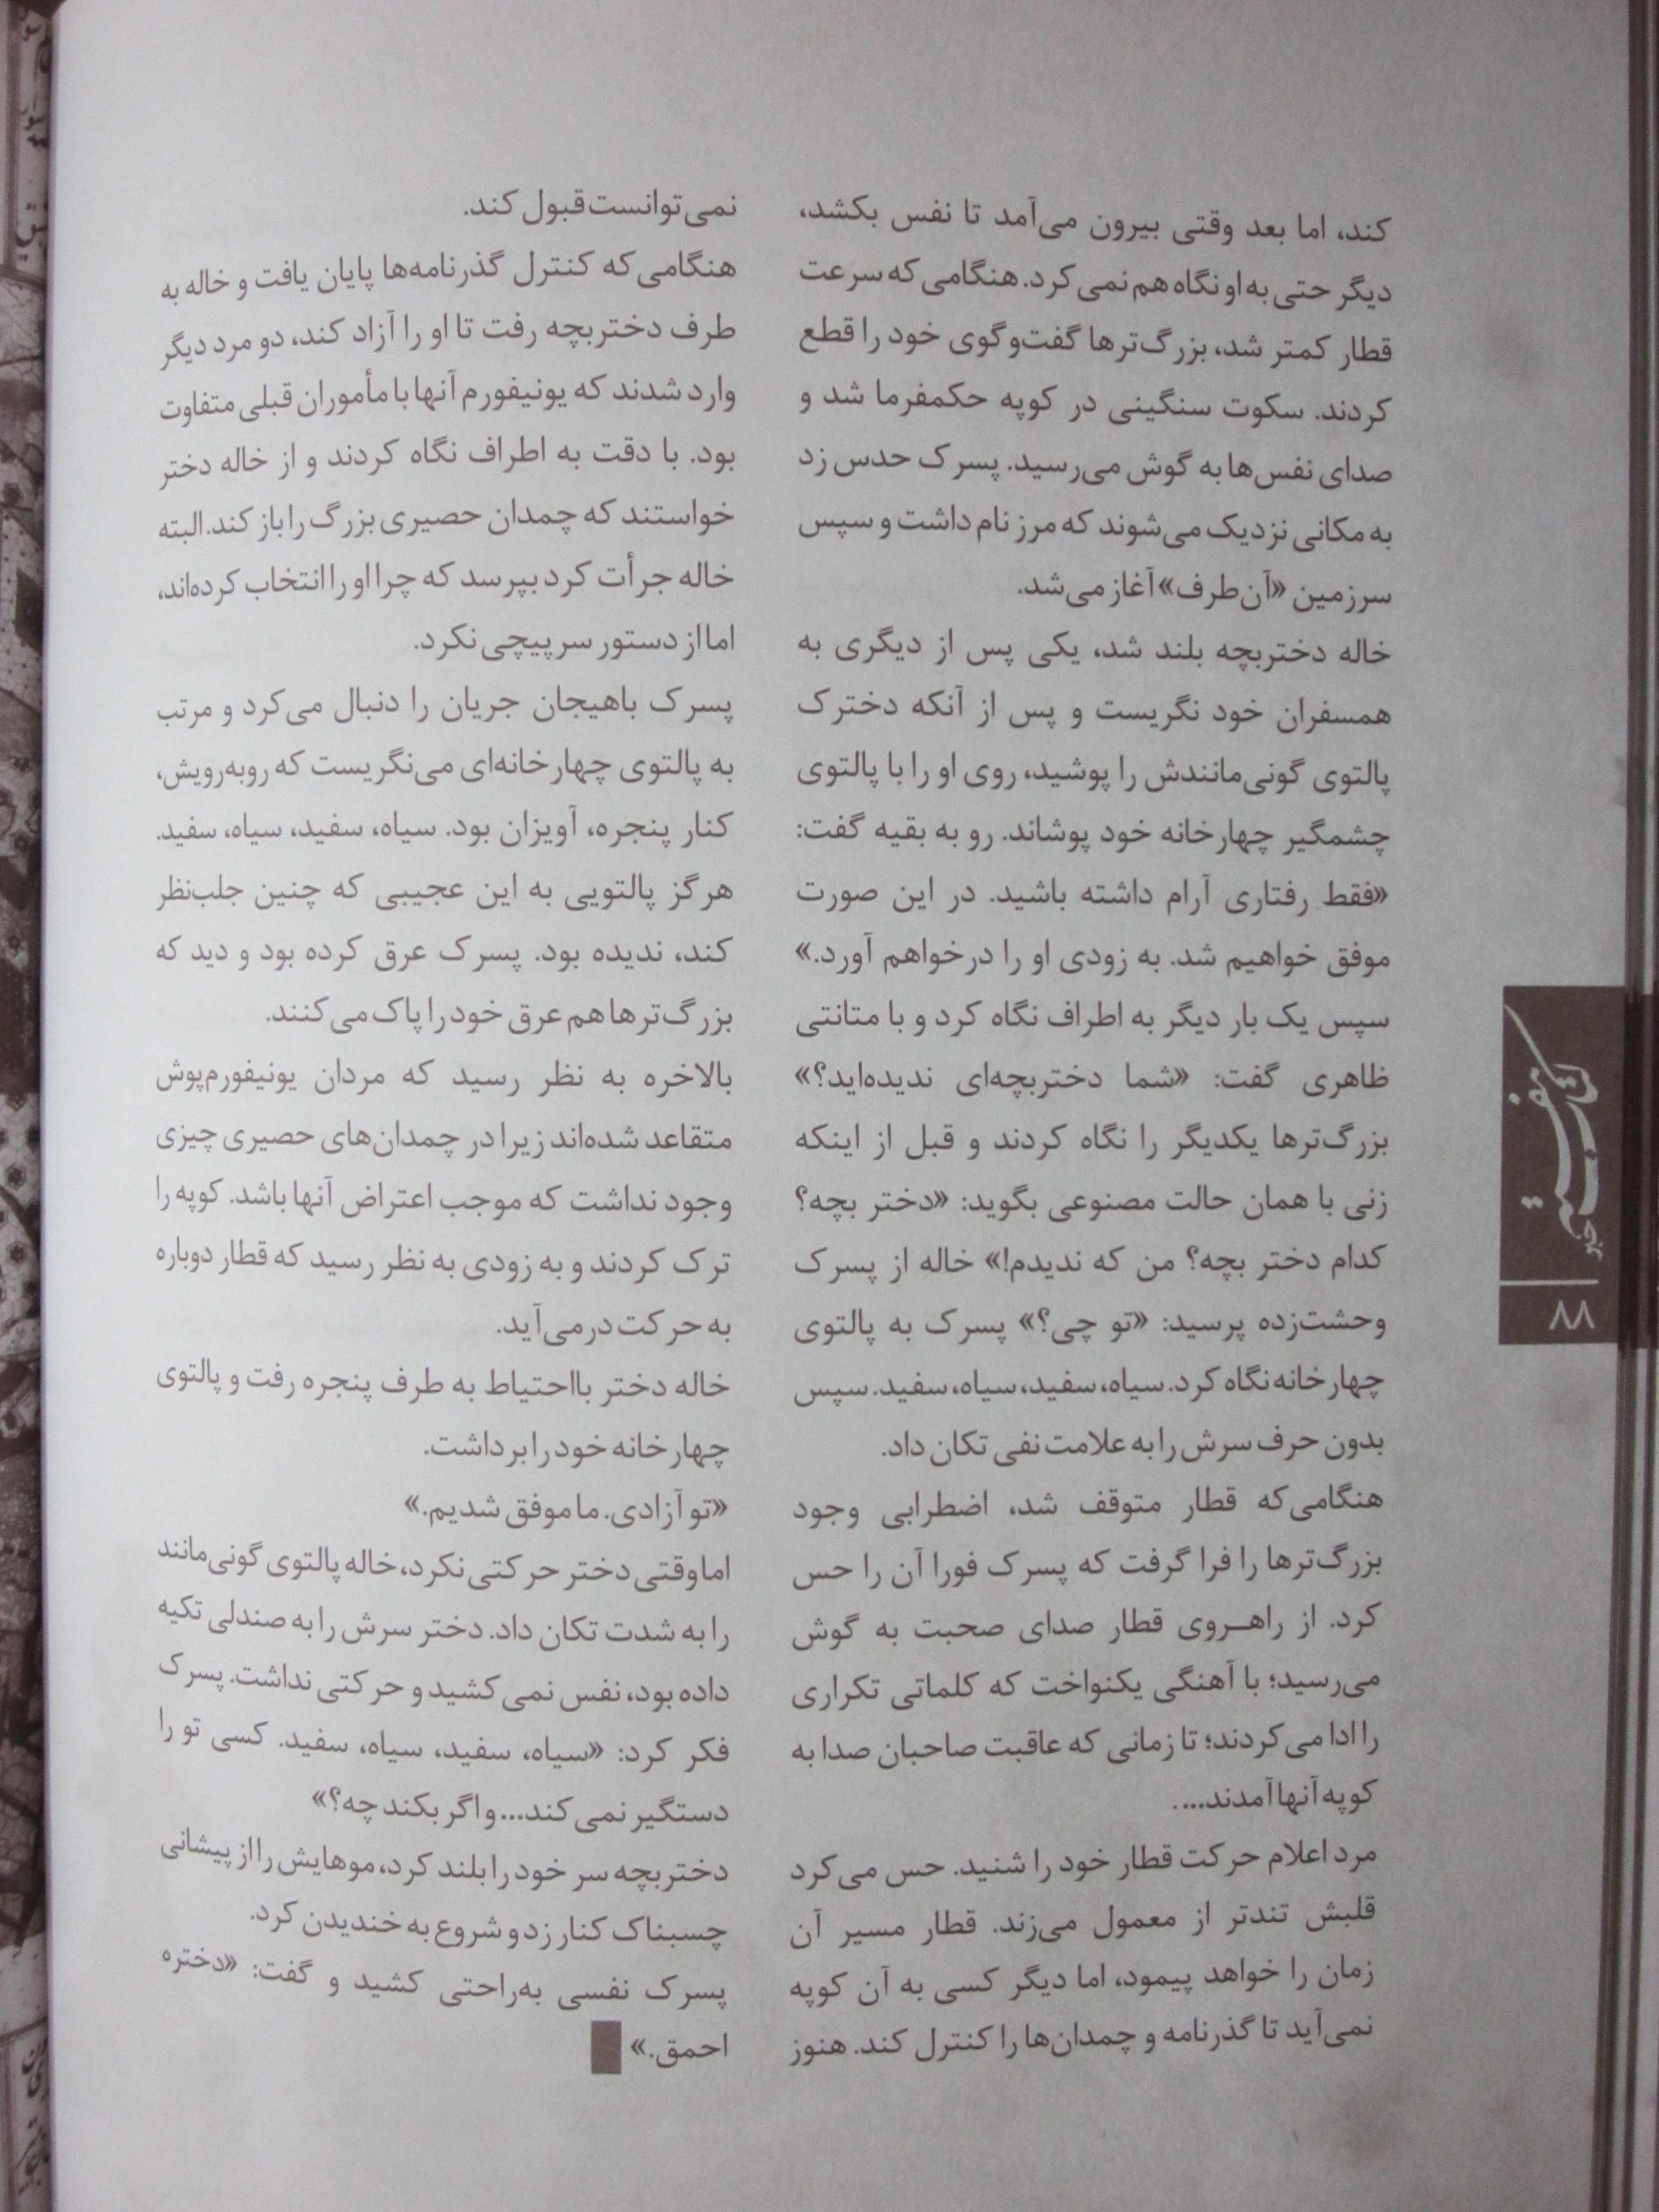 کند، اما بعد وقتی بیرون می‌آمد تا نفس بکشد،
دیگر حتی به او نگاه هم نمی‌کرد. هنگامی که سرعت
قطار کمتر شد، بزرگ‌ترها گفت‌وگوی خود را قطع
کردند. سکوت سنگینی در کوپه حکمفرما شد و
صدای نفس‌ها به گوش می‌رسید. پسرک حدس زد
به مکانی نزدیک می‌شوند که مرز نام داشت و سپس
سرزمین «آن‌طرف» آغاز می‌شد.
خاله دختربچه بلند شد، یکی پس از دیگری به
همسفران خود نگریست و پس از آنکه دخترک
پالتوی گونی‌مانندش را پوشید، روی او را با پالتوی
چشمگیر چهارخانه خود پوشاند. رو به بقیه گفت:
«فقط رفتاری آرام داشته باشید. در این صورت
موفق خواهیم شد. به زودی او را درخواهم آورد.»
سپس یک بار دیگر به اطراف نگاه کرد و با متانتی
ظاهری گفت: «شما دختربچه‌ای ندیده‌اید؟»
بزرگ‌ترها یکدیگر را نگاه کردند و قبل از اینکه
زنی با همان حالت مصنوعی بگوید: «دختر بچه؟
کدام دختر بچه؟ من که ندیدم!» خاله از پسرک
وحشت‌زده پرسید: «تو چی؟» پسرک به پالتوی
چهارخانه نگاه کرد. سیاه، سفید، سیاه، سفید. سپس
بدون حرف سرش را به علامت نفی تکان داد.
هنگامی‌که قطار متوقف شد، اضطرابی وجود
بزرگ‌ترها را فرا گرفت که پسرک فورا آن را حس
کرد. از راهــروی قطار صدای صحبت به گوش
می‌رسید؛ با آهنگی یکنواخت که کلماتی تکراری
را ادا می‌کردند؛ تا زمانی که عاقبت صاحبان صدا به
کوپه آنها آمدند....
مرد اعلام حرکت قطار خود را شنید. حس می‌کرد
قلبش تندتر از معمول می‌زند. قطار مسیر آن
زمان را خواهد پیمود، اما دیگر کسی به آن کوپه
نمی‌آید تا گذرنامه و چمدان‌ها را کنترل کند. هنوز
نمی‌توانست قبول کند.
هنگامی‌که کنترل گذرنامه‌ها پایان یافت و خاله به
طرف دختربچه رفت تا او را آزاد کند، دو مرد دیگر
وارد شدند که یونیفورم آنها با مأموران قبلی متفاوت
بود. با دقت به اطراف نگاه کردند و از خاله دختر
خواستند که چمدان حصیری بزرگ را باز کند. البته
خاله جرأت کرد بپرسد که چرا او را انتخاب کرده‌اند،
اما از دستور سرپیچی نکرد.
پسرک باهیجان جریان را دنبال می‌کرد و مرتب
به پالتوی چهارخانه‌ای می‌نگریست که روبه‌رویش،
کنار پنجره، آویزان بود. سیاه، سفید، سیاه، سفید.
هرگز پالتویی به این عجیبی که چنین جلب‌نظر
کند، ندیده بود. پسرک عرق کرده بود و دید که
بزرگ‌ترها هم عرق خود را پاک می‌کنند.
بالاخره به نظر رسید که مردان یونیفورم‌پوش
متقاعد شده‌اند زیرا در چمدان‌های حصیری چیزی
وجود نداشت که موجب اعتراض آنها باشد. کوپه را
ترک کردند و به زودی به نظر رسید که قطار دوباره
به حرکت درمی‌آید.
خاله دختر بااحتیاط به طرف پنجره رفت و پالتوی
چهارخانه خود را برداشت.
«تو آزادی. ما موفق شدیم.»
اما وقتی دختر حرکتی نکرد، خاله پالتوی گونی‌مانند
را به شدت تکان داد. دختر سرش را به صندلی تکیه
داده بود، نفس نمی‌کشید و حرکتی نداشت. پسرک
فکر کرد: «سیاه، سفید، سیاه، سفید. کسی تو را
دستگیر نمی‌کند... و اگر بکند چه؟»
دختربچه سر خود را بلند کرد، موهایش را از پیشانی
چسبناک کنار زد و شروع به خندیدن کرد.
پسرک نفسی به‌راحتی کشید و گفت: «دختره
احمق.»
کتاب هفته
خبر
۸۸